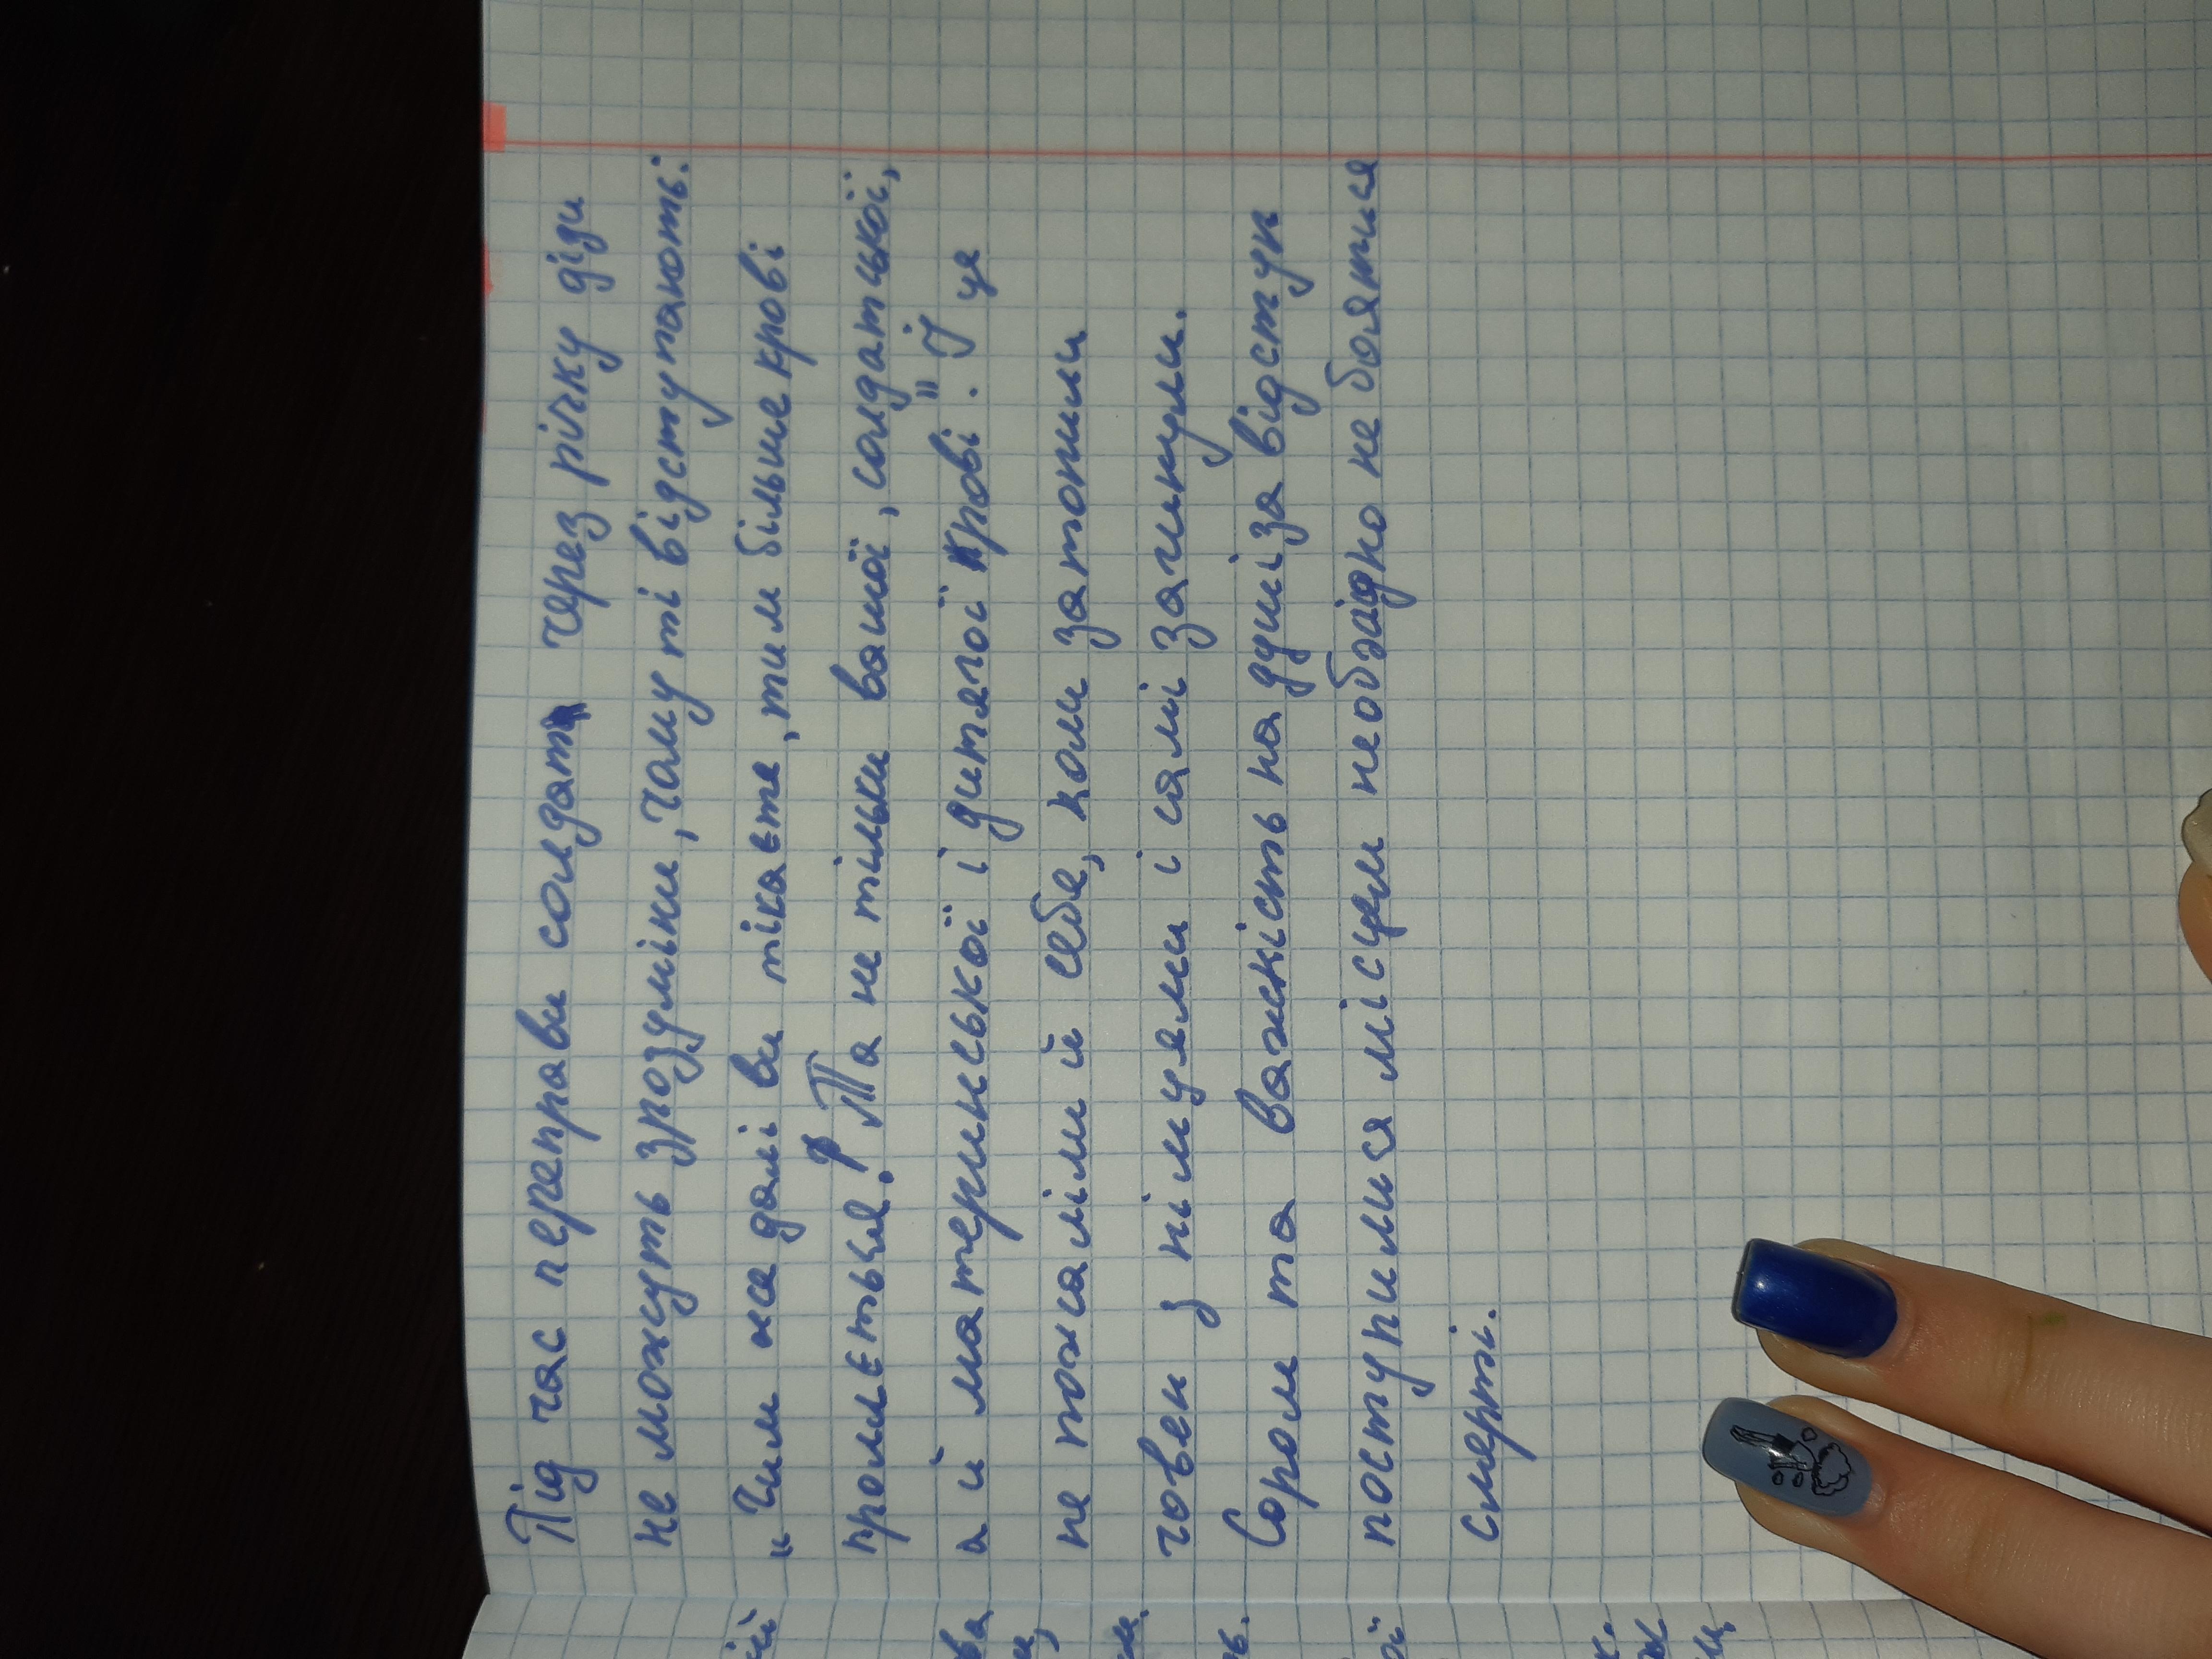 Під час переправи солдат через річку діди
не можуть зрозуміни, чому ті відступають:
"Чим же далі ви тікаєте, тим більше крові
проллється! Та не тільки вашої, солдатської,
а й материнської і дитячої крові." Ці це
не пожаліли й себе, коли затопили
човен з німцями і самі загинули.
Сором та важкість на душі за відступ
поступилися місцем необхідно не боятися
смерті.